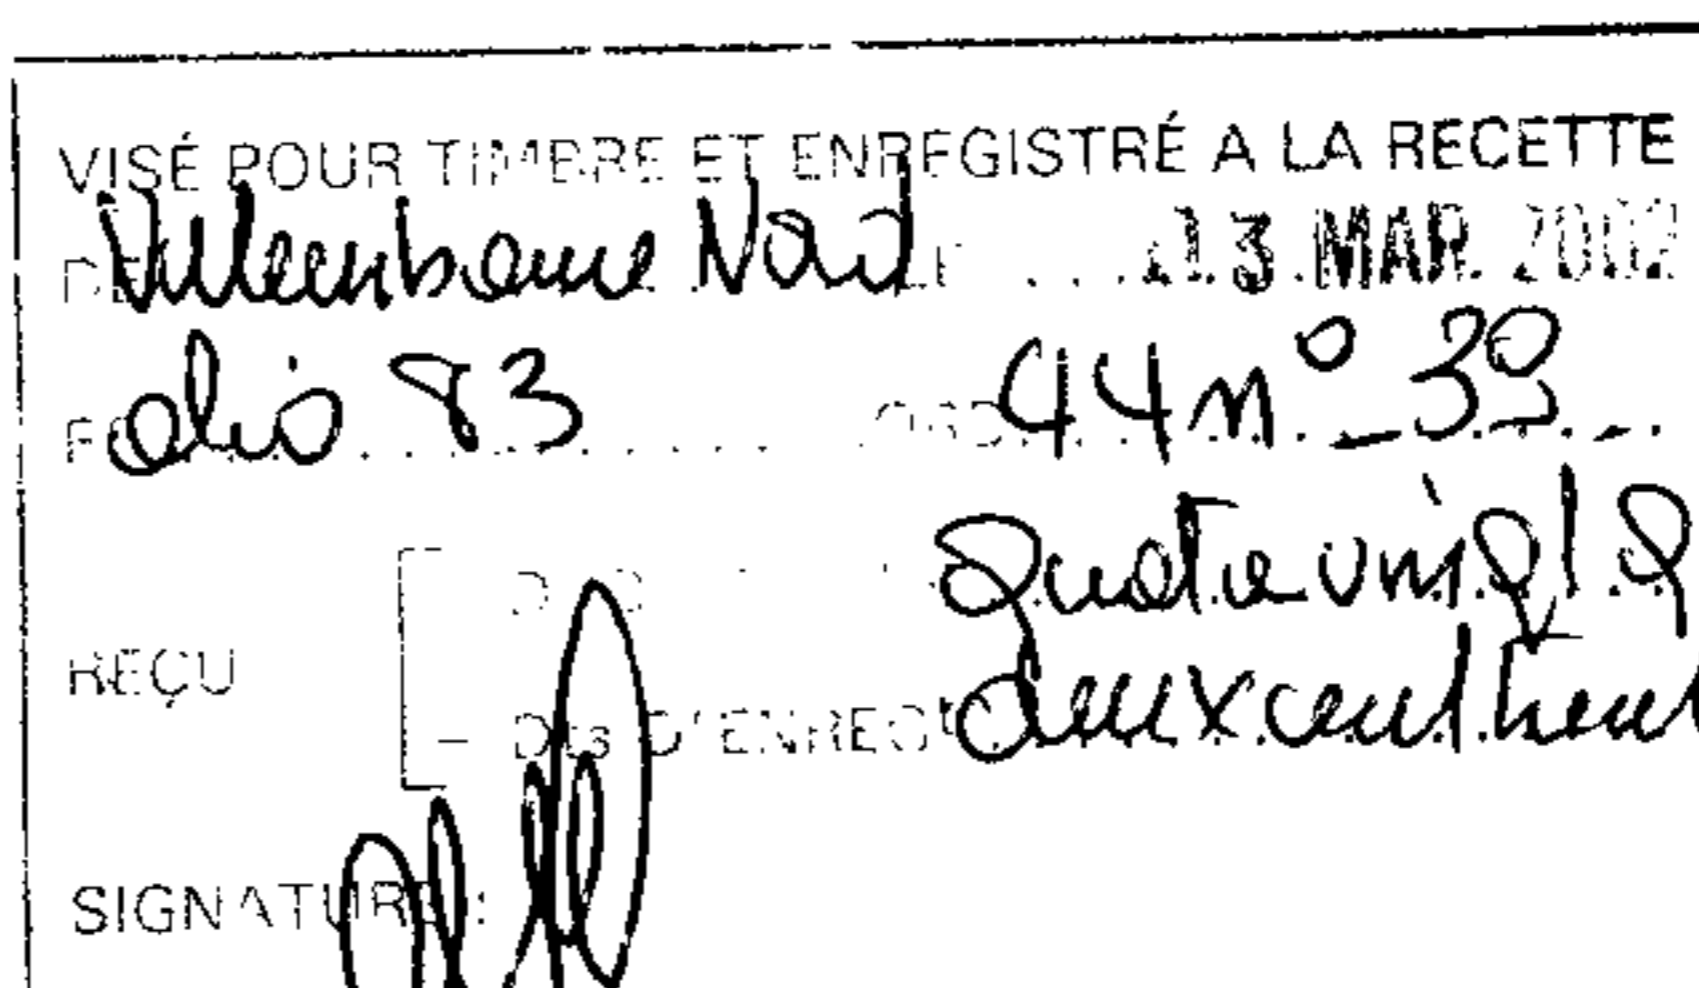 VISÉ POUR TIMBRE ET ENREGISTRÉ A LA RECETTE
DE Villeurbanne Nord LE 13 MAR. 2002
Folio 83 44 n° 39
Quatre vingt
REÇU
- Dts D'ENREGt deux cent
SIGNATURE :